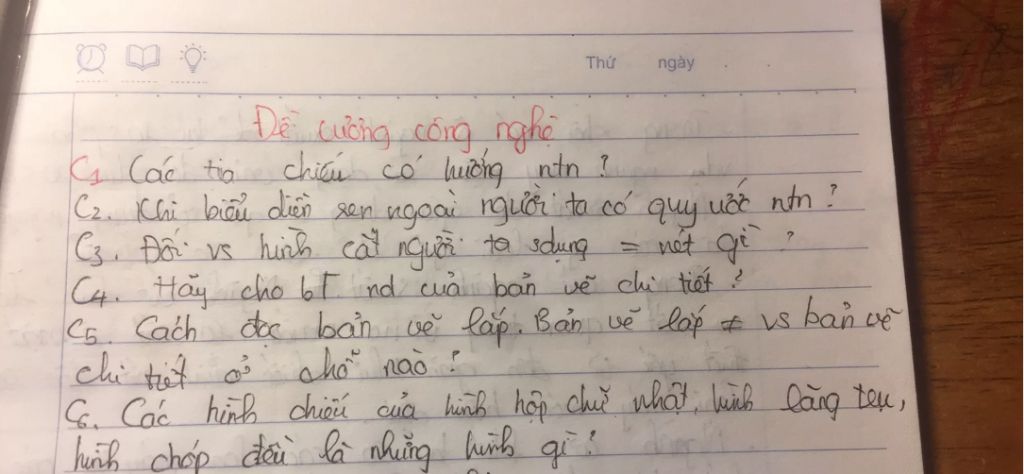 Thứ ngày
Đề cương công nghệ
C1 Các tia chiếu có hướng ntn ?
C2. Khi biểu diễn ren ngoài người ta có quy ước ntn ?
C3. Đối vs hình cắt người ta sdụng = nét gì ?
C4. Hãy cho bT nd của bản vẽ chi tiết ?
C5. Cách đọc bản vẽ lắp. Bản vẽ lắp ≠ vs bản vẽ
chi tiết ở chỗ nào ?
C6. Các hình chiếu của hình hộp chữ nhật, hình lăng trụ,
hình chóp đều là những hình gì ?